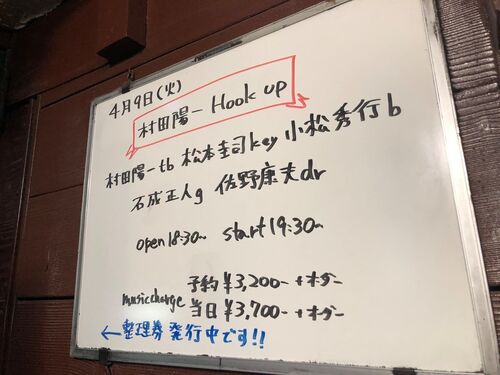 4月9日(火)
村田陽一 Hook up
村田陽一tb 松本圭司key 小松秀行b
石成正人g 佐野康夫dr
open18:30〜 start19:30〜
予約¥3,200-+オーダー
musiccharge 当日¥3,700-+オーダー
←整理券発行中です!!